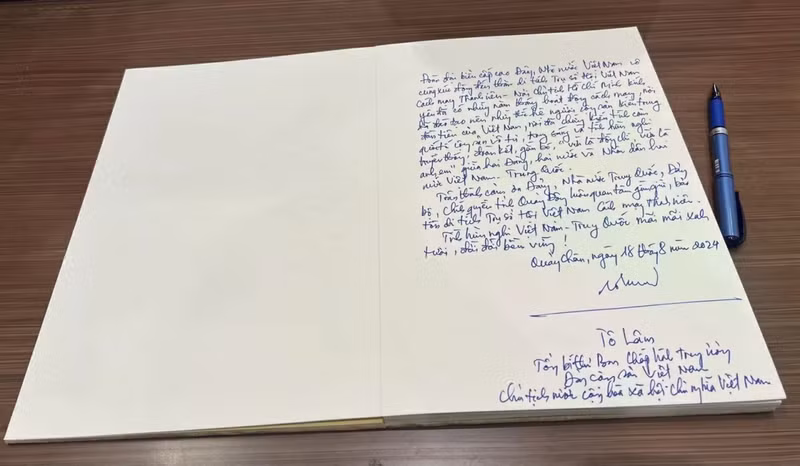 Đoàn đại biểu cấp cao Đảng, Nhà nước Việt Nam vô
cùng xúc động đến thăm di tích Trụ sở Hội Việt Nam
Cách mạng Thanh niên - Nơi Chủ tịch Hồ Chí Minh kính
yêu đã có những năm tháng hoạt động cách mạng, nơi
đã đào tạo nên những thế hệ người cộng sản kiên trung
đầu tiên của Việt Nam, nơi đã chứng kiến tình cảm
quốc tế cộng sản vô tư, trong sáng và tình hữu nghị
truyền thống, đoàn kết, gắn bó, "vừa là đồng chí, vừa là
anh em" giữa hai Đảng, hai nước và Nhân dân hai
nước Việt Nam - Trung Quốc.
Trân thành cảm ơn Đảng, Nhà nước Trung Quốc, Đảng
bộ, Chính quyền tỉnh Quảng Đông luôn quan tâm gìn giữ, bảo
tồn di tích Trụ sở Hội Việt Nam Cách mạng Thanh niên.
Tình hữu nghị Việt Nam - Trung Quốc mãi mãi xanh
tươi, đời đời bền vững!
Quảng Châu, ngày 18 tháng 8 năm 2024
Tô Lâm
Tổng bí thư Ban Chấp hành Trung ương
Đảng cộng sản Việt Nam
Chủ tịch nước cộng hòa xã hội chủ nghĩa Việt Nam